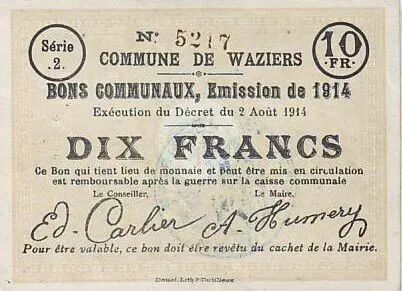 Série
.2.
N° 5217
10
·FR·
COMMUNE DE WAZIERS
BONS COMMUNAUX, Emission de 1914
Exécution du Décret du 2 Août 1914
DIX FRANCS
Ce Bon qui tient lieu de monnaie et peut être mis en circulation
est remboursable après la guerre sur la caisse communale
Le Conseiller, Le Maire.
Ed. Carlier A. Humery
Pour être valable, ce bon doit être revêtu du cachet de la Mairie.
Douai, Lith.